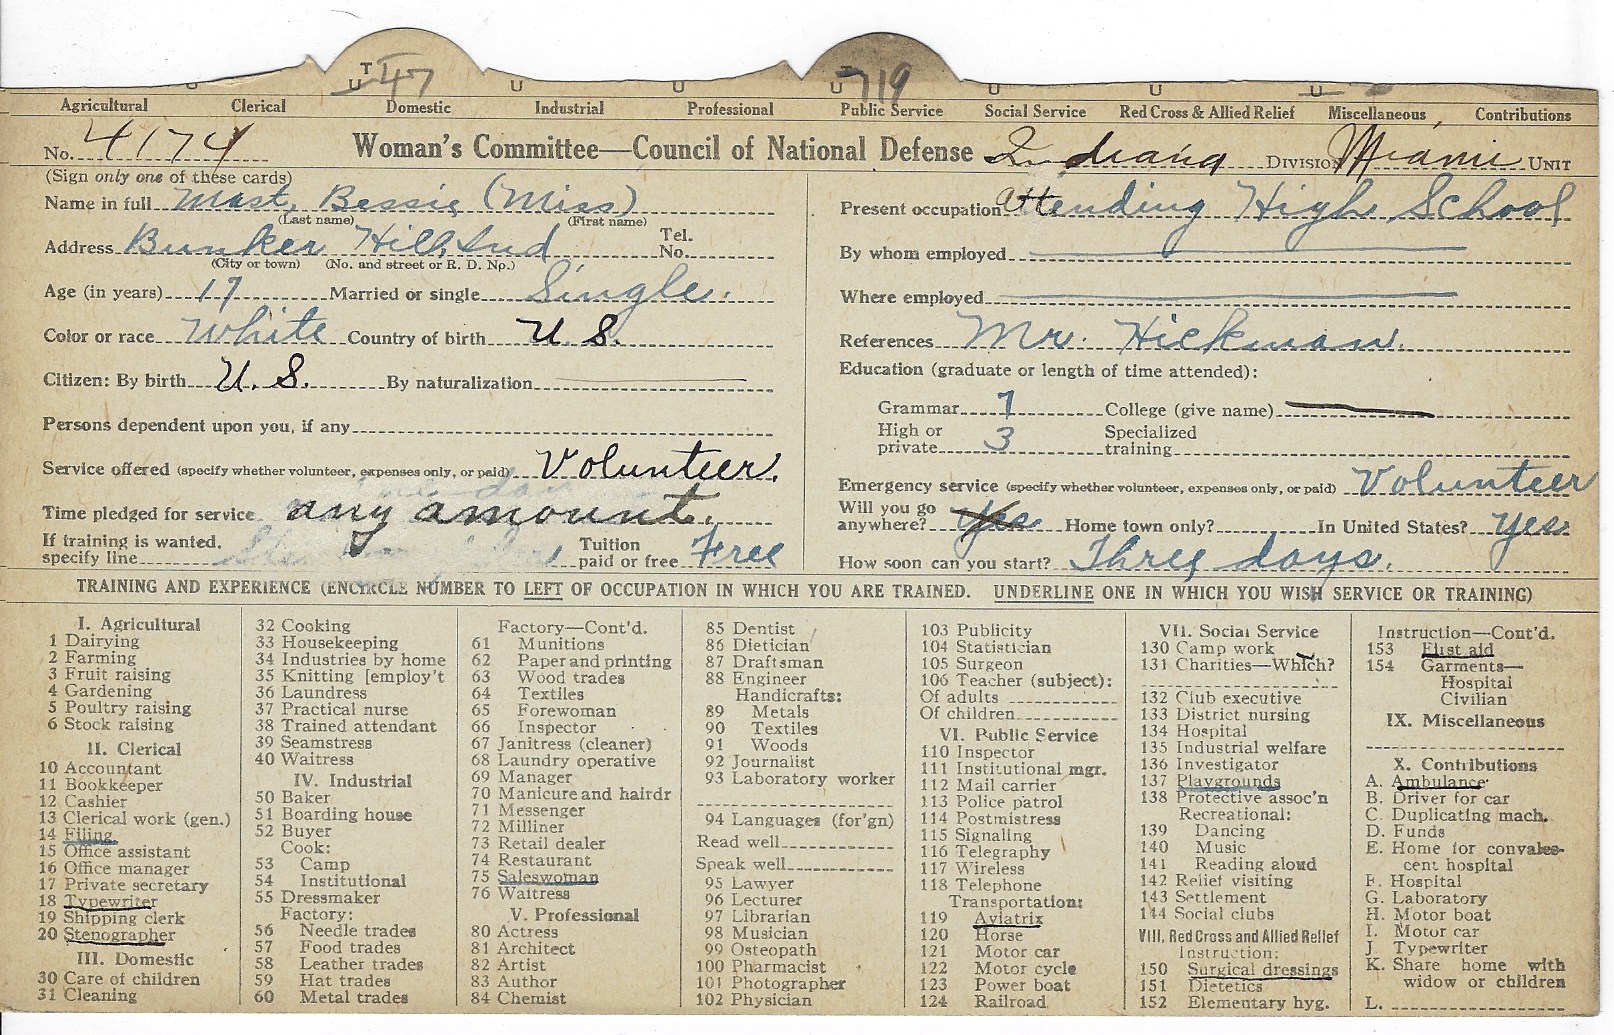 T 47 719
U U U U U U U
Agricultural Clerical Domestic Industrial Professional Public Service Social Service Red Cross & Allied Relief Miscellaneous Contributions
No. 4174 Woman's Committee—Council of National Defense Indiana DIVISION Miami UNIT
(Sign only one of these cards)
Name in full Mast, Bessie (Miss)
(Last name) (First name)
Address Bunker Hill, Ind Tel. No.
(City or town) (No. and street or R. D. No.)
Age (in years) 17 Married or single Single.
Color or race White Country of birth U. S.
Citizen: By birth U. S. By naturalization
Persons dependent upon you, if any
Service offered (specify whether volunteer, expenses only, or paid) Volunteer.
Time pledged for service any amount.
If training is wanted, specify line Tuition paid or free Free
Present occupation Attending High School
By whom employed
Where employed
References Mr. Hickman.
Education (graduate or length of time attended):
Grammar 7 College (give name)
High or private 3 Specialized training
Emergency service (specify whether volunteer, expenses only, or paid) Volunteer
Will you go anywhere? Yes Home town only? In United States? Yes.
How soon can you start? Three days.
TRAINING AND EXPERIENCE (ENCIRCLE NUMBER TO LEFT OF OCCUPATION IN WHICH YOU ARE TRAINED. UNDERLINE ONE IN WHICH YOU WISH SERVICE OR TRAINING)
I. Agricultural
1 Dairying
2 Farming
3 Fruit raising
4 Gardening
5 Poultry raising
6 Stock raising
II. Clerical
10 Accountant
11 Bookkeeper
12 Cashier
13 Clerical work (gen.)
14 Filing
15 Office assistant
16 Office manager
17 Private secretary
18 Typewriter
19 Shipping clerk
20 Stenographer
III. Domestic
30 Care of children
31 Cleaning
32 Cooking
33 Housekeeping
34 Industries by home
35 Knitting [employ't
36 Laundress
37 Practical nurse
38 Trained attendant
39 Seamstress
40 Waitress
IV. Industrial
50 Baker
51 Boarding house
52 Buyer
Cook:
53 Camp
54 Institutional
55 Dressmaker
Factory:
56 Needle trades
57 Food trades
58 Leather trades
59 Hat trades
60 Metal trades
Factory—Cont'd.
61 Munitions
62 Paper and printing
63 Wood trades
64 Textiles
65 Forewoman
66 Inspector
67 Janitress (cleaner)
68 Laundry operative
69 Manager
70 Manicure and hairdr
71 Messenger
72 Milliner
73 Retail dealer
74 Restaurant
75 Saleswoman
76 Waitress
V. Professional
80 Actress
81 Architect
82 Artist
83 Author
84 Chemist
85 Dentist
86 Dietician
87 Draftsman
88 Engineer
Handicrafts:
89 Metals
90 Textiles
91 Woods
92 Journalist
93 Laboratory worker
94 Languages (for'gn)
Read well
Speak well
95 Lawyer
96 Lecturer
97 Librarian
98 Musician
99 Osteopath
100 Pharmacist
101 Photographer
102 Physician
103 Publicity
104 Statistician
105 Surgeon
106 Teacher (subject):
Of adults
Of children
VI. Public Service
110 Inspector
111 Institutional mgr.
112 Mail carrier
113 Police patrol
114 Postmistress
115 Signaling
116 Telegraphy
117 Wireless
118 Telephone
Transportation:
119 Aviatrix
120 Horse
121 Motor car
122 Motor cycle
123 Power boat
124 Railroad
VII. Social Service
130 Camp work
131 Charities—Which?
132 Club executive
133 District nursing
134 Hospital
135 Industrial welfare
136 Investigator
137 Playgrounds
138 Protective assoc'n
Recreational:
139 Dancing
140 Music
141 Reading aloud
142 Relief visiting
143 Settlement
144 Social clubs
VIII. Red Cross and Allied Relief
Instruction:
150 Surgical dressings
151 Dietetics
152 Elementary hyg.
Instruction—Cont'd.
153 First aid
154 Garments—
Hospital
Civilian
IX. Miscellaneous
X. Contributions
A. Ambulance
B. Driver for car
C. Duplicating mach.
D. Funds
E. Home for convales-
cent hospital
F. Hospital
G. Laboratory
H. Motor boat
I. Motor car
J. Typewriter
K. Share home with
widow or children
L.